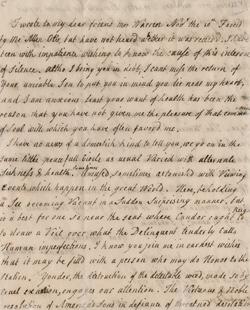 I wrote to my dear Mrs Warren Novr the 10th
by Mr Allen Otis but have not heard whether it was received. I have
been with impatience wishing to know the cause of this interval
of silence. altho I bring you in debt, I cant miss the return of
your amiable Son to put you in mind you lie near my heart,
and I am anxious least your want of health has been the
reason that you have not given me the pleasure of that commun
of soul with which you have often favored me.
I have no news of a domestick kind to tell you, we go on in the
same little peaceful circle as usual Varied with alternate
Sickness & health, sometimes astonished with Viewing
Events which happen in the great World. Now, beholding
a See becoming Vacant in a Sudden Surprizing manner, but
is best for one so near the seat where Candor ought to
to draw a Veil over what the Delinquent tenderly Calls
Human imperfections, I know you join me in earnest wishes
that it may be filled with a person who may do Honor to the
Station. Yonder, the destruction of the detestable weed, made so by
cruel exaction, engages our attention. The Virtuous & Noble
resolution of America's Sons in defiance of threatned desolation